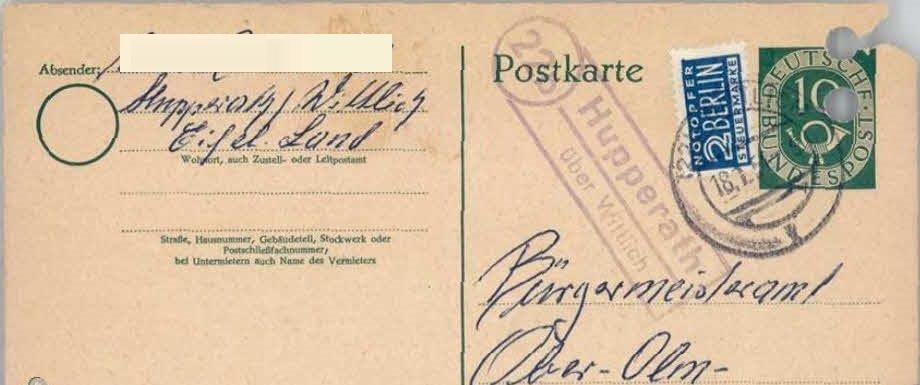 Absender:
Hupperath / Wittlich
Eifel-Land
Wohnort, auch Zustell- oder Leitpostamt
Straße, Hausnummer, Gebäudeteil, Stockwerk oder
Postschließfachnummer;
bei Untermietern auch Name des Vermieters
22b
Hupperath
über Wittlich
Postkarte
NOTOPFER
2 BERLIN
STEUERMARKE
DEUTSCHE
BUNDESPOST
10
18.1.5
Bürgermeisteramt
Ober-Olm-